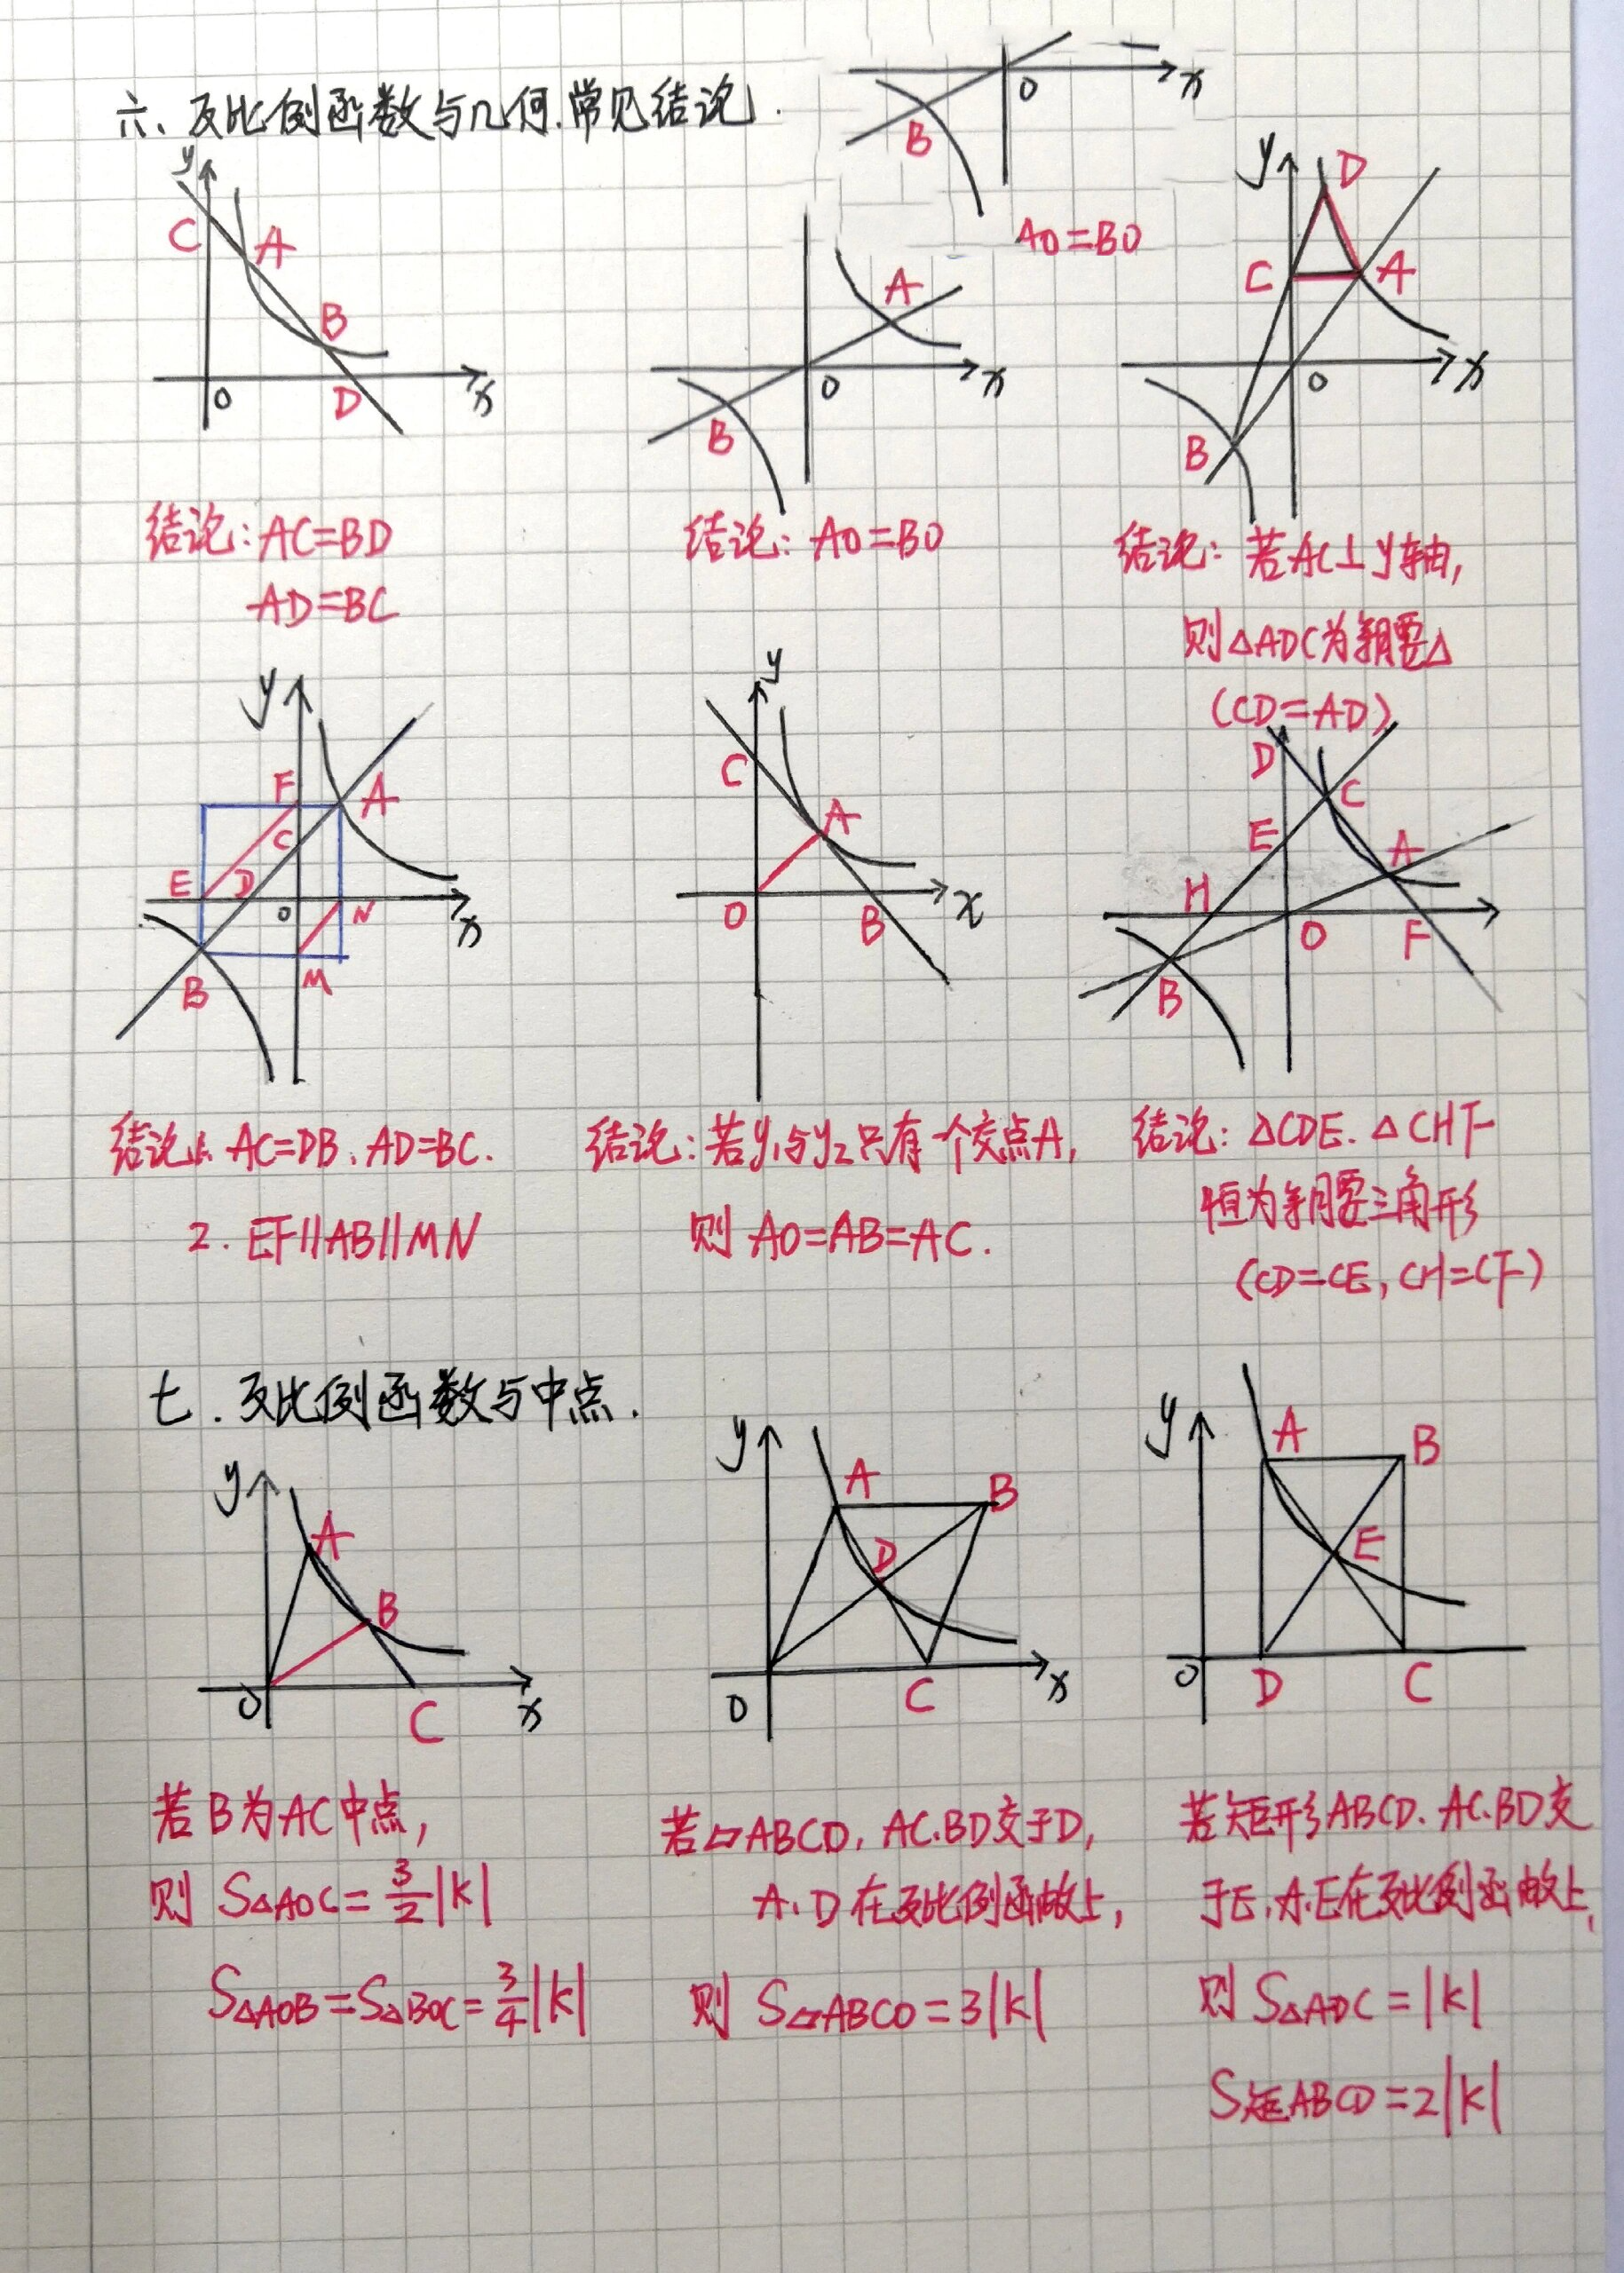 六、反比例函数与几何.常见结论.
x
O
B
AO=BO
y
C
A
B
O
D
x
A
O
x
B
y
D
C
A
O
x
B
结论:AC=BD
AD=BC
结论:AO=BO
结论:若AC⊥y轴,
则△ADC为等腰△
(CD=AD)
y
F
A
C
E
D
O
N
x
B
M
y
C
A
O
B
x
D
C
E
A
H
O
F
B
结论1. AC=DB、AD=BC.
2. EF∥AB∥MN
结论:若y₁与y₂只有一个交点A,
则 AO=AB=AC.
结论:△CDE、△CHF
恒为等腰三角形
(CD=CE, CH=CF)
七.反比例函数与中点.
y
A
B
O
C
x
y
A
B
D
O
C
x
y
A
B
E
O
D
C
若B为AC中点,
则 S△AOC=3/2|k|
S△AOB=S△BOC=3/4|k|
若▱ABCO, AC.BD交于D,
A、D在反比例函数上,
则 S▱ABCO=3|k|
若矩形ABCD. AC.BD交
于E,A.E在反比例函数上,
则 S△ADC=|k|
S矩ABCD=2|k|